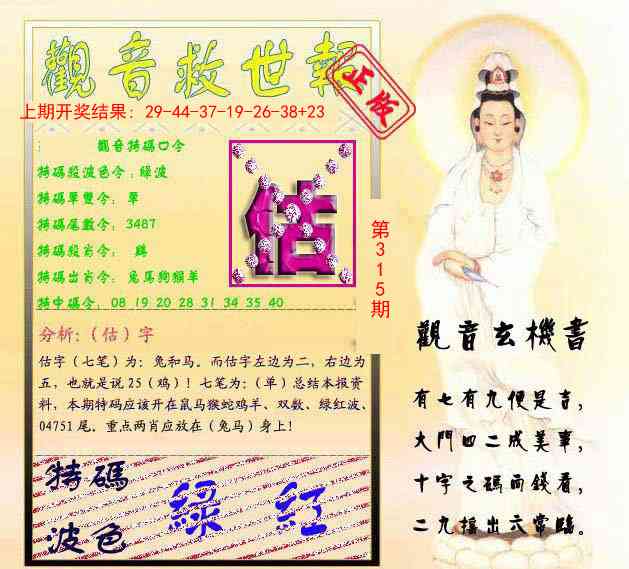 觀音救世報
正版
上期开奖结果：29-44-37-19-26-38+23
觀音特碼口令
特碼段波色令：綠波
特碼單雙令：單
特碼尾數令：3487
特碼殺肖令： 鷄
特碼出肖令：兔馬狗猴羊
特中碼令：08 19 20 28 31 34 35 40
估
第315期
分析:（估）字
估字（七笔）为：兔和马。而估字左边为二，右边为
五，也就是说 25（鸡）！七笔为:（单）总结本报资
料，本期特码应该开在鼠马猴蛇鸡羊、双数、绿红波、
04751 尾。重点两肖应放在（兔马）身上！
特碼
波色
綠 紅
觀音玄機書
有七有九便是吉，
大門四二成美事，
十字之碼而錢看，
二九擋出六常臨。